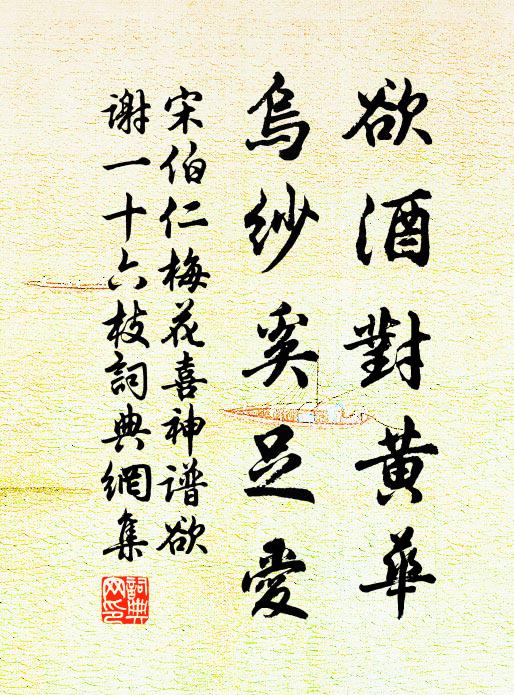 欲酒對黄華
烏紗奚足愛
宋伯仁梅花喜神谱欲
谢一十六枝詞典網集
詞典網印